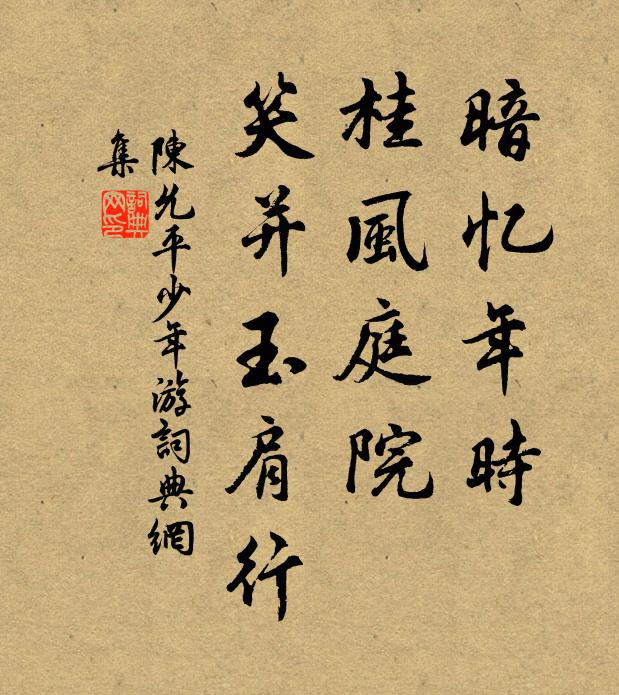 暗忆年時
桂風庭院
笑并玉肩行
陳允平少年游詞典網
集
詞典网印